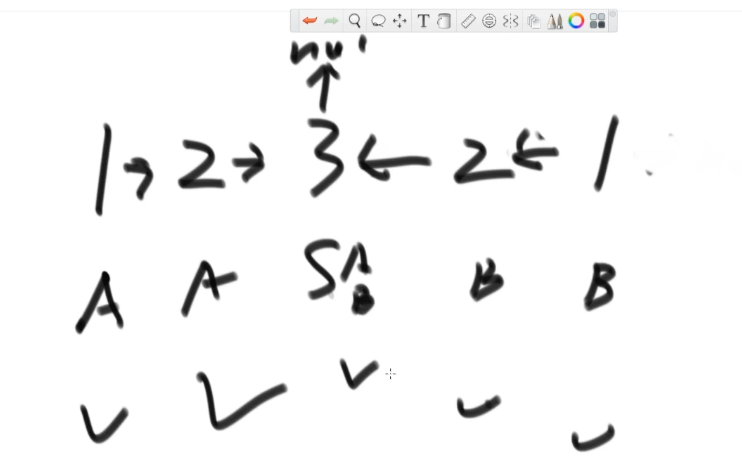 nul
1 → 2 → 3 ← 2 ← 1
A A S A B B B
T